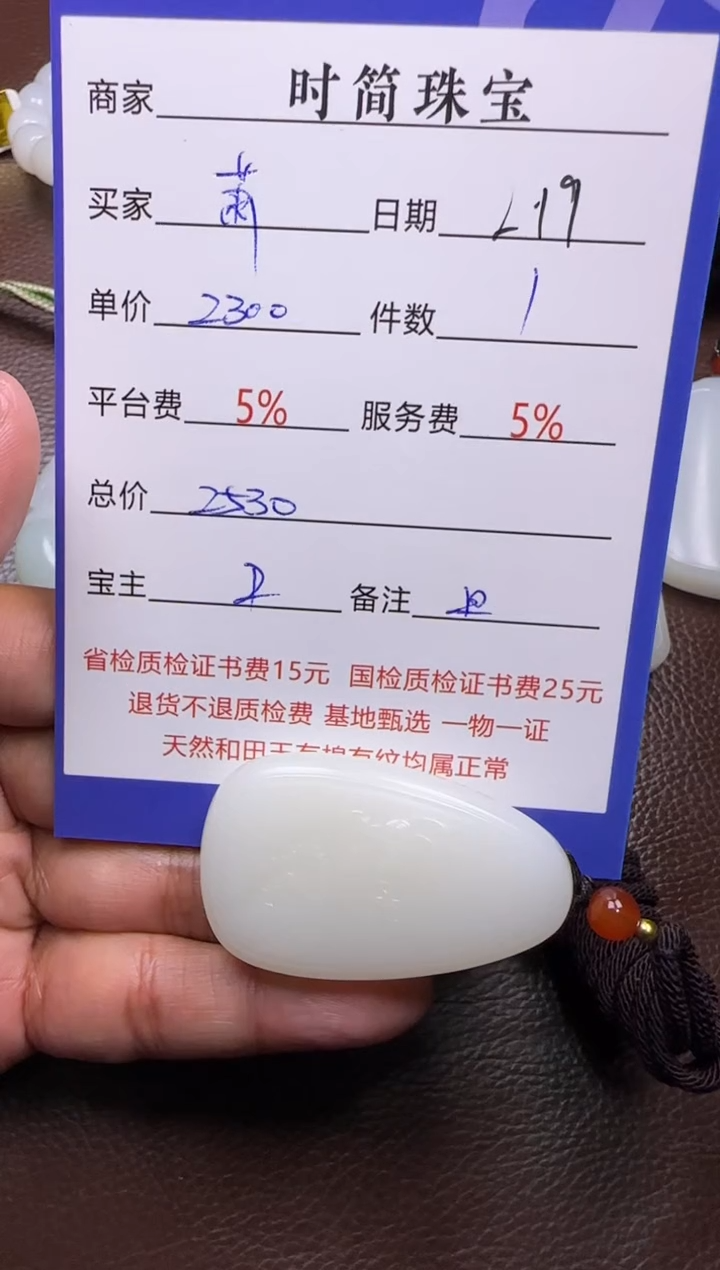 商家 时简珠宝
买家 萧 日期 1.19
单价 2300 件数 1
平台费 5% 服务费 5%
总价 2530
宝主 备注
省检质检证书费15元 国检质检证书费25元
退货不退质检费 基地甄选 一物一证
天然和田玉有棉有纹均属正常